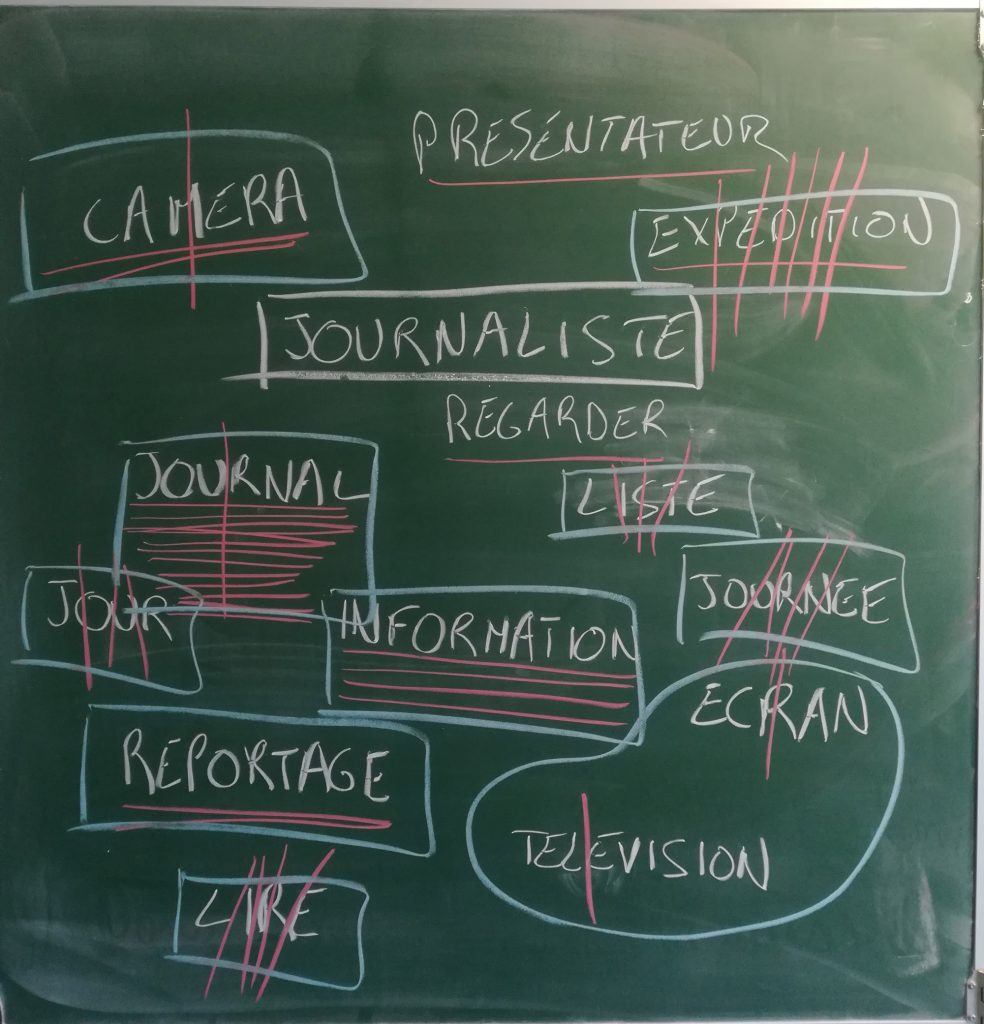 PRÉSENTATEUR
CAMERA
EXPÉDITION
JOURNALISTE
REGARDER
JOURNAL
LISTE
JOUR
JOURNÉE
INFORMATION
ECRAN
REPORTAGE
TÉLÉVISION
LIRE